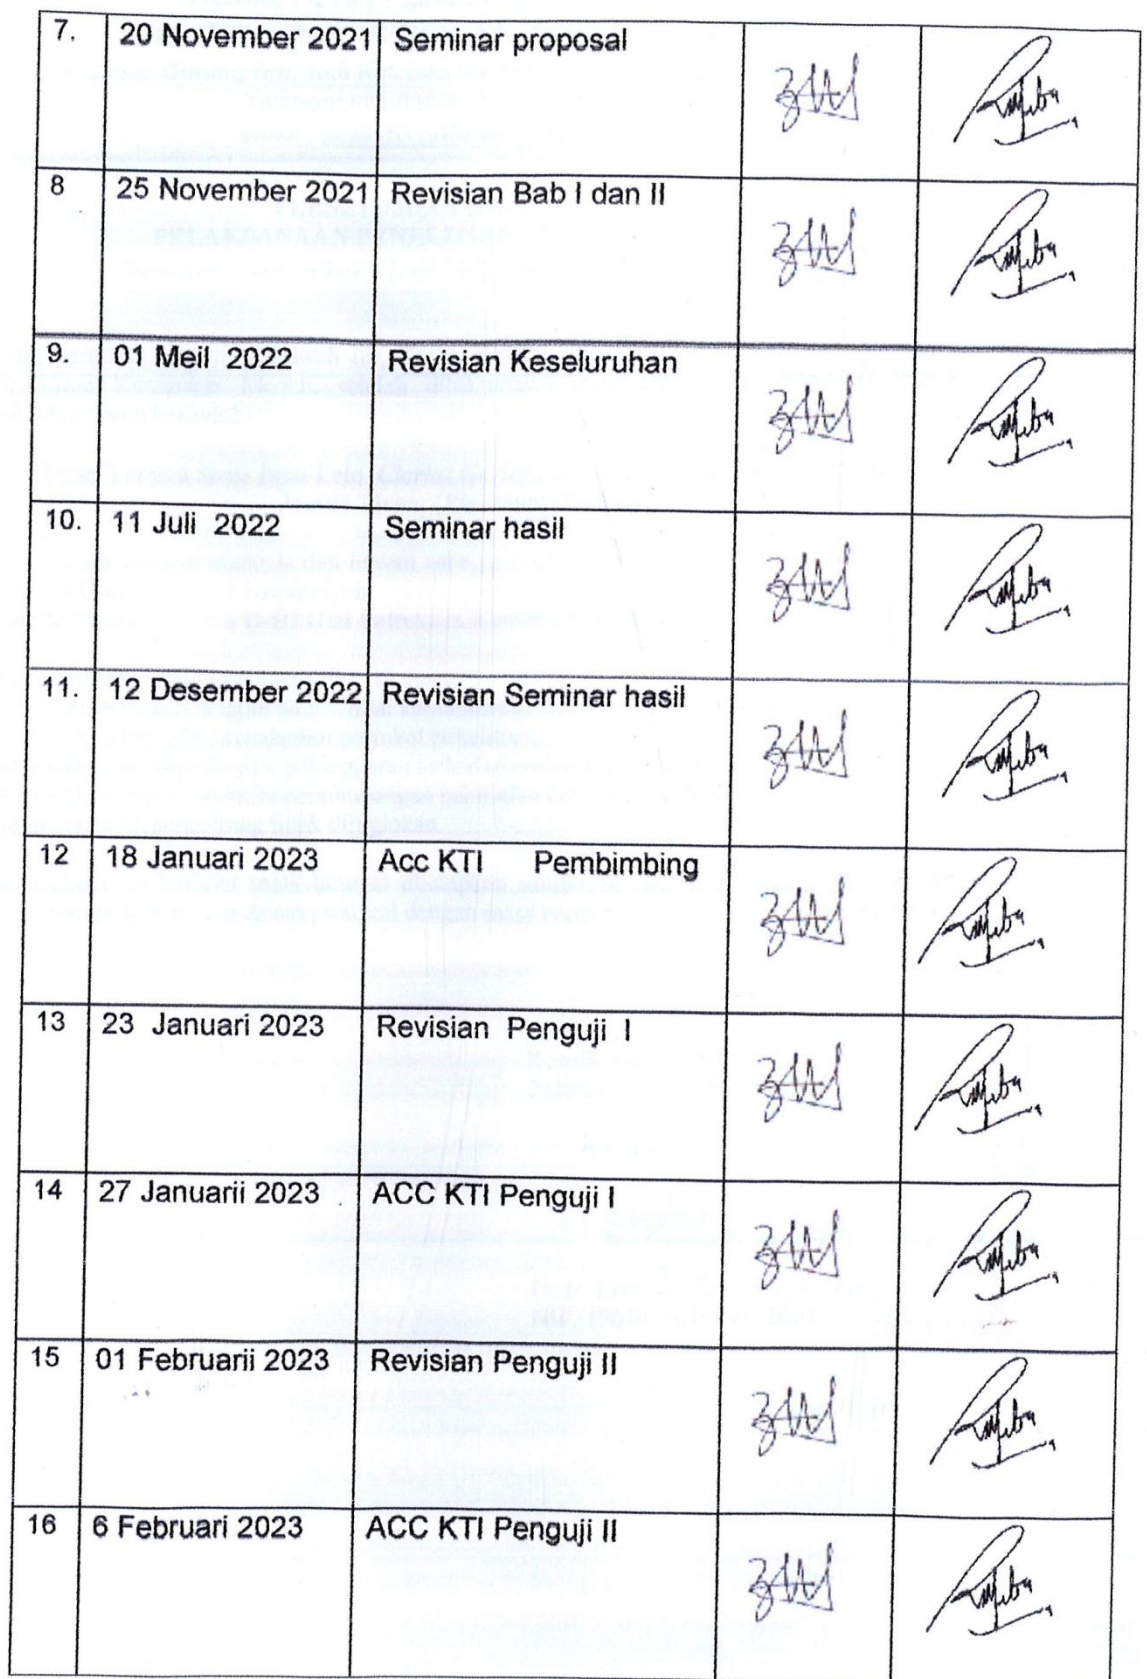 7. 20 November 2021 Seminar proposal
8 25 November 2021 Revisian Bab I dan II
9. 01 Meil 2022 Revisian Keseluruhan
10. 11 Juli 2022 Seminar hasil
11. 12 Desember 2022 Revisian Seminar hasil
12 18 Januari 2023 Acc KTI Pembimbing
13 23 Januari 2023 Revisian Penguji I
14 27 Januarii 2023 ACC KTI Penguji I
15 01 Februarii 2023 Revisian Penguji II
16 6 Februari 2023 ACC KTI Penguji II